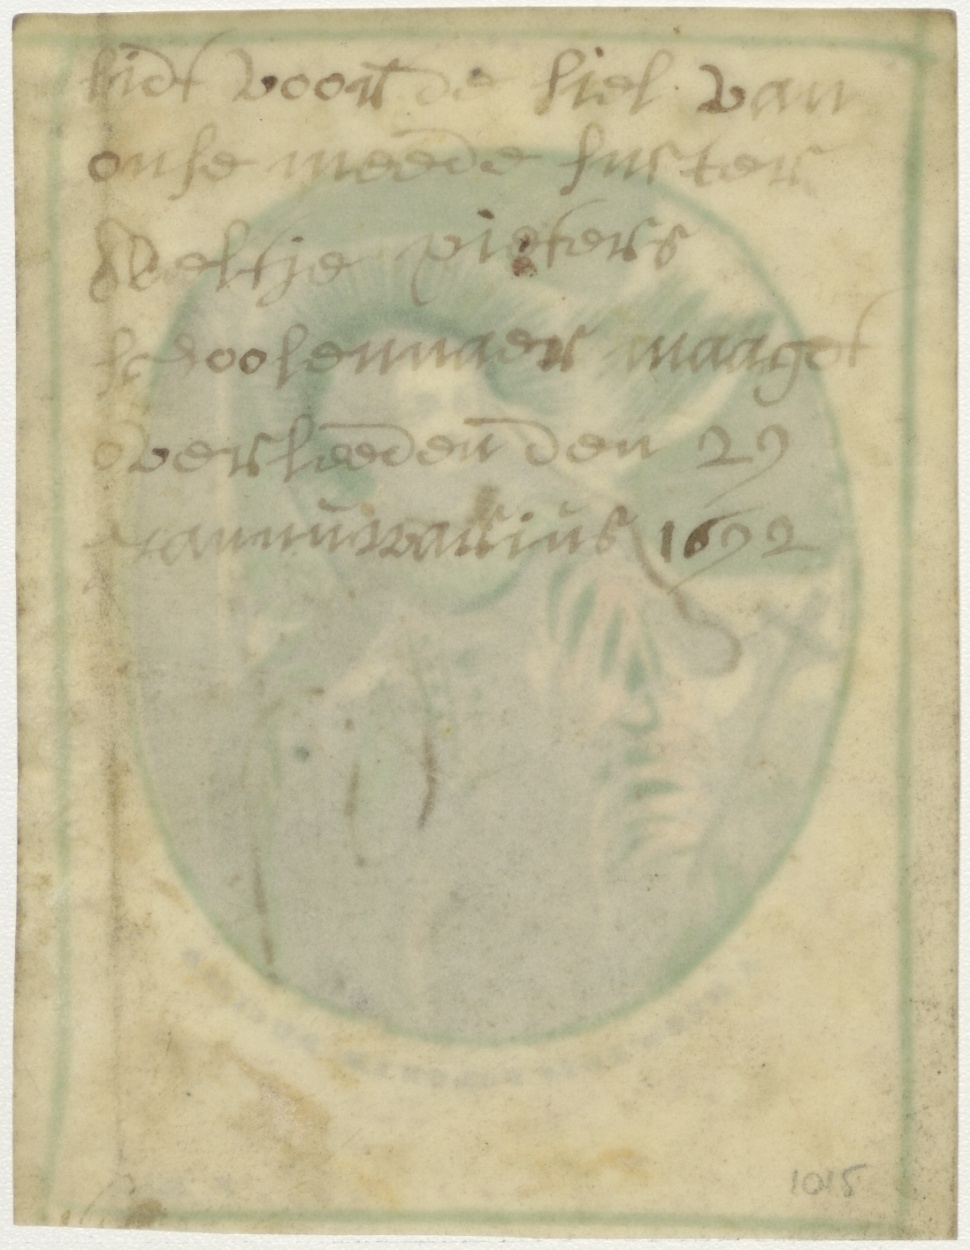 bidt voor de siel van
onse meede suster
Weltje pieters
schoolennaer maaget
overleeden den 29
Jannuwarius 1692
1015